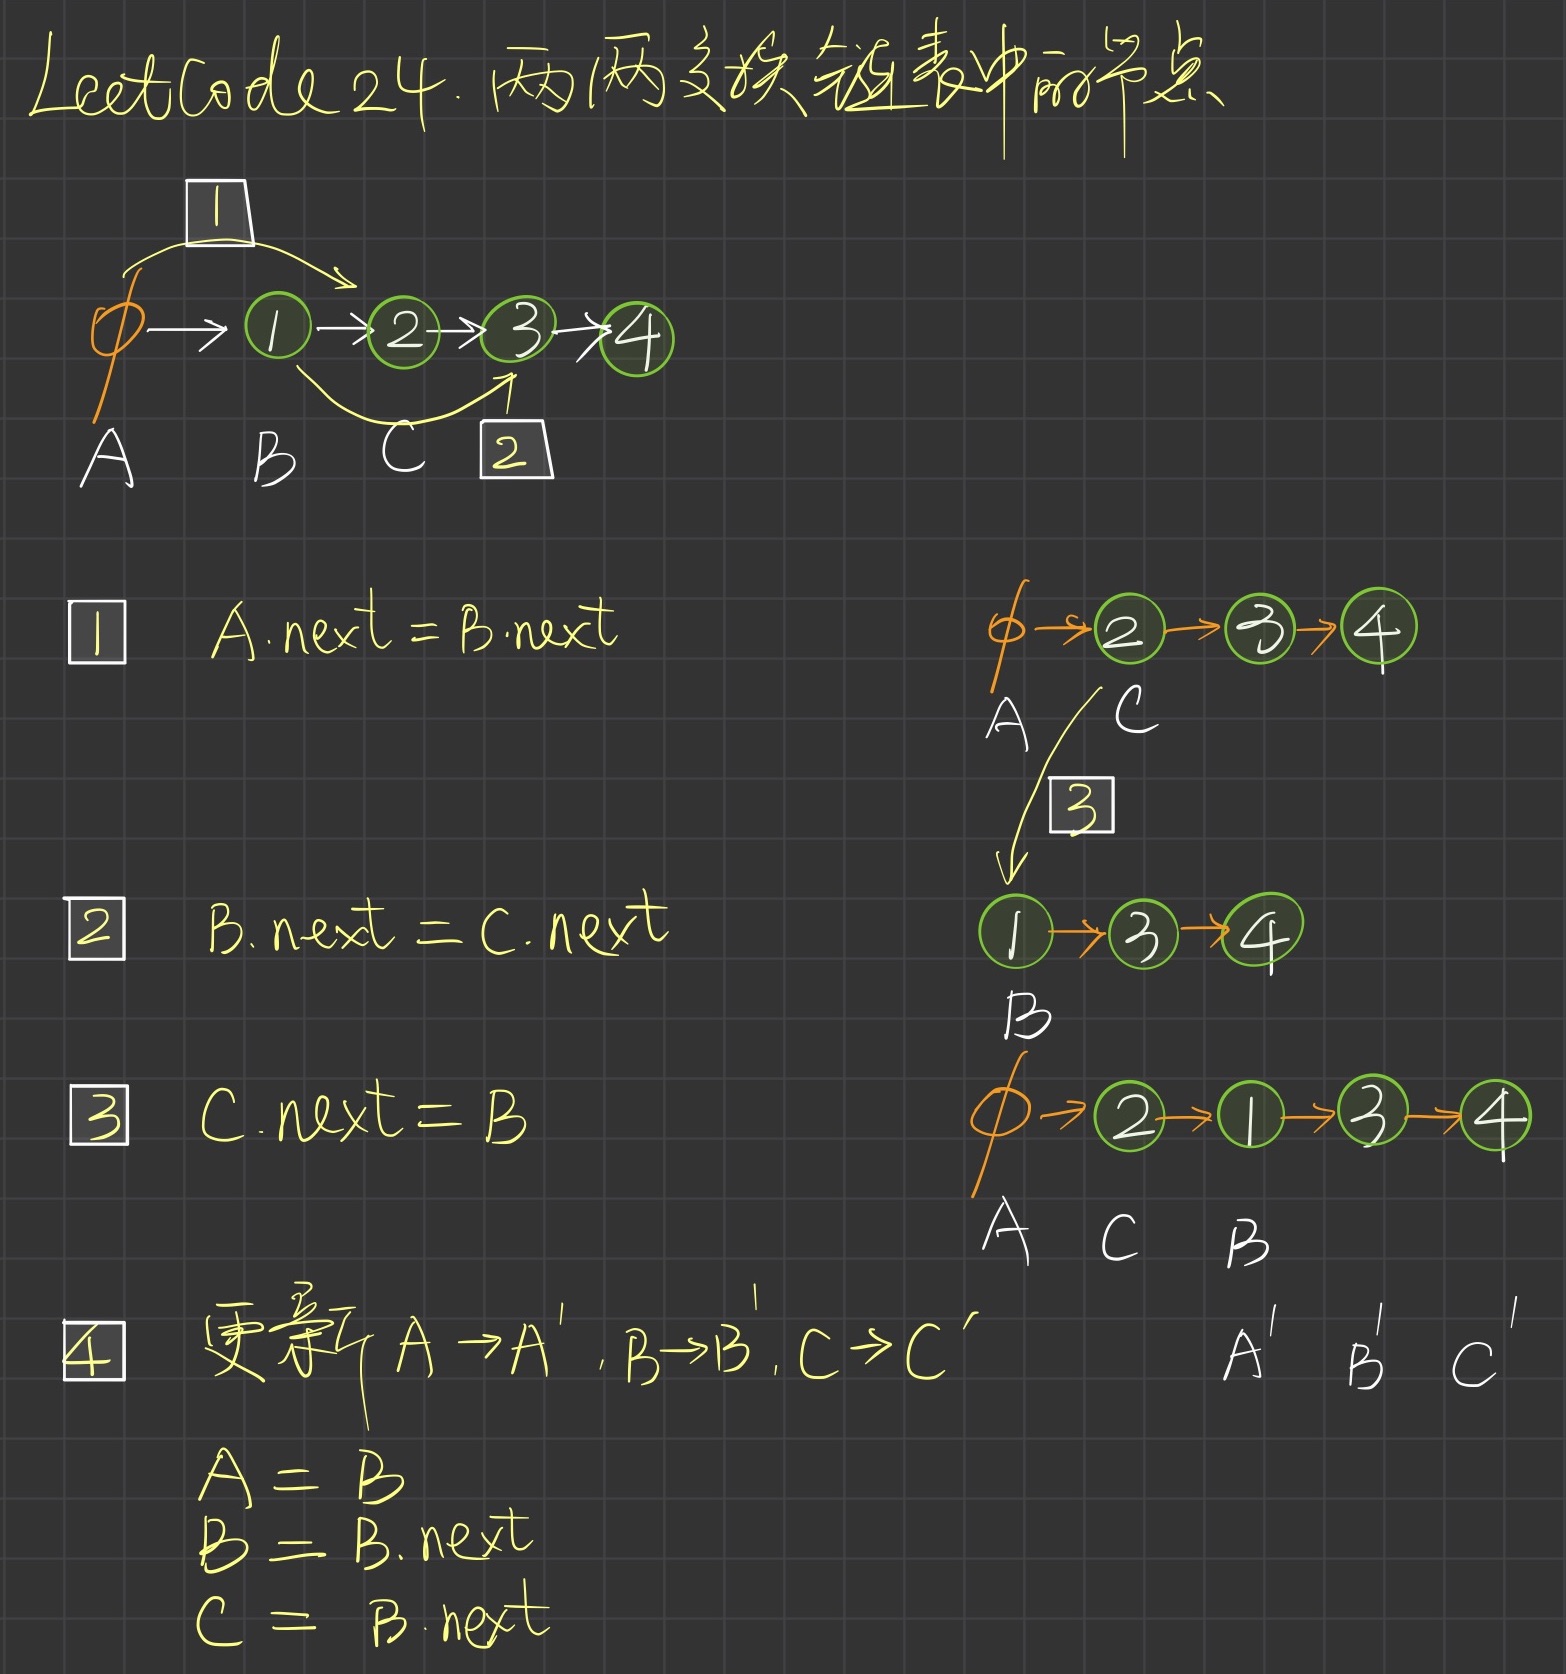 LeetCode 24. 两两交换链表中的节点
1
1 2 3 4
A B C 2
1 A.next = B.next
2 3 4
A C
3
2 B.next = C.next
1 3 4
B
3 C.next = B
2 1 3 4
A C B
4 更新 A → A', B → B', C → C'
A' B' C'
A = B
B = B.next
C = B.next